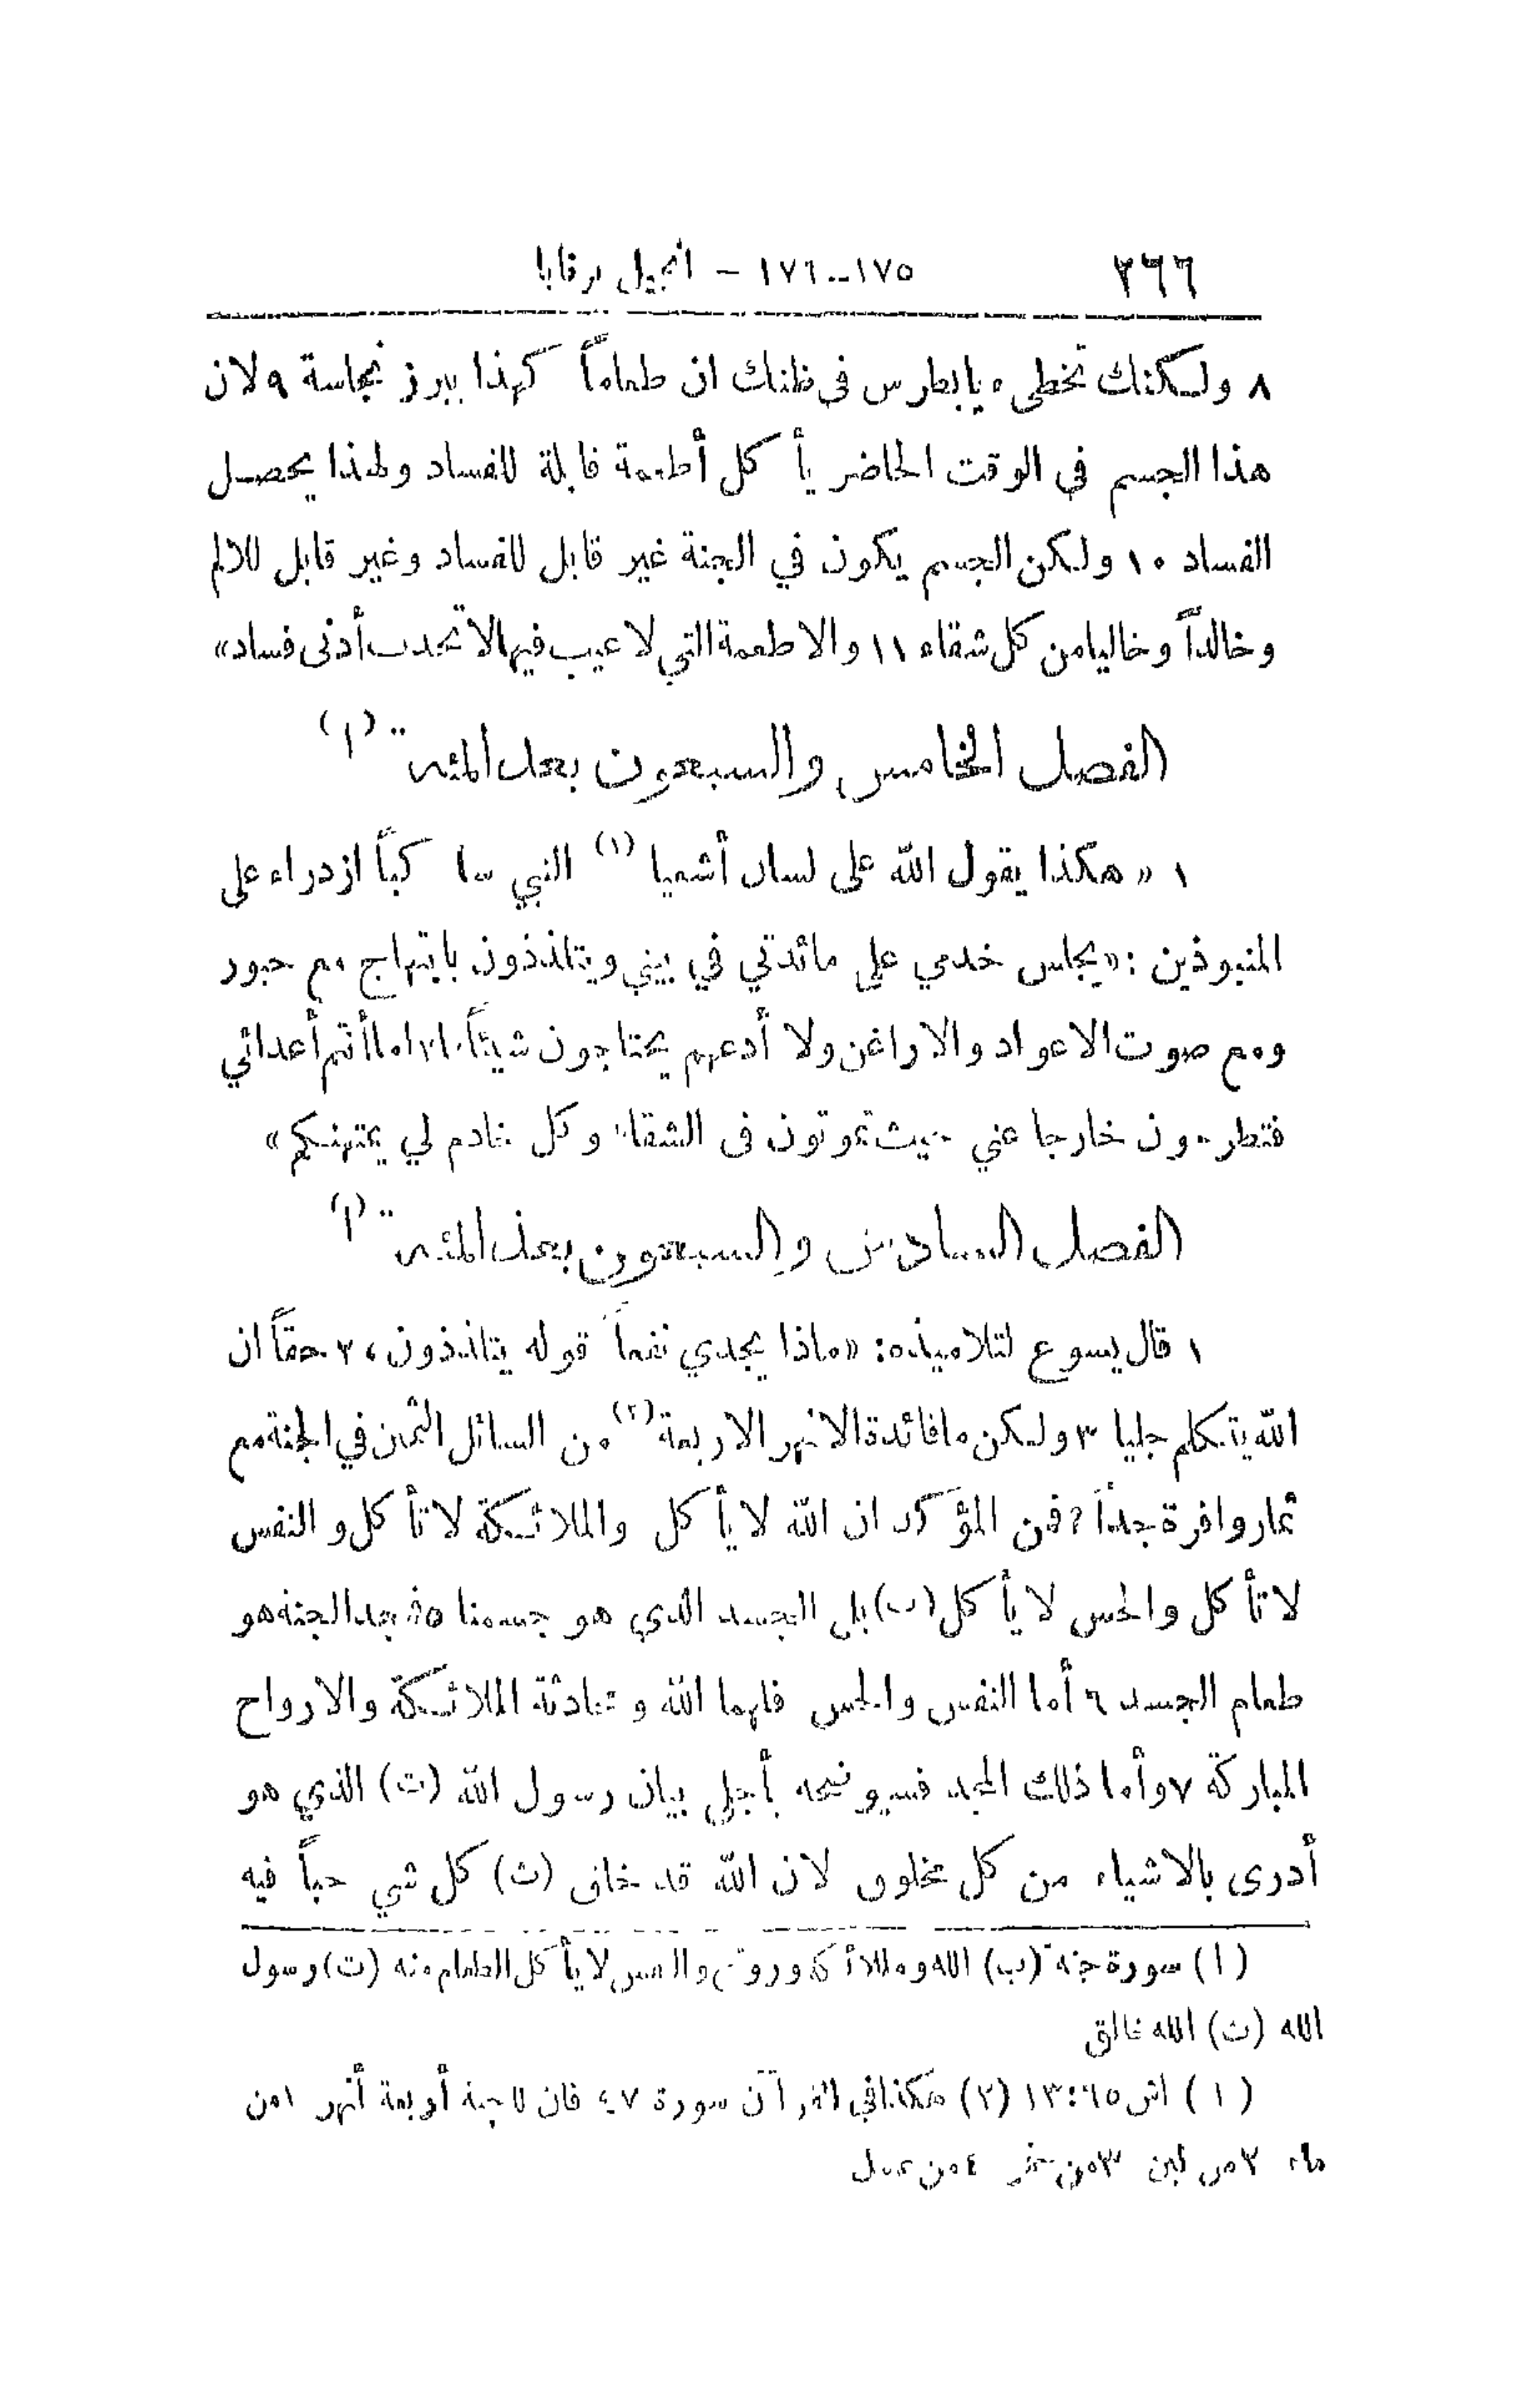 ٢٦٦ ١٧٥ــ١٧٦ – انجيل برنابا
٨ ولكنك تخطىء يابطرس في ظنك ان طعاماً كهذا يبرز نجاسة ٩ لان
هذا الجسم في الوقت الحاضر يأكل أطعمة قابلة للفساد ولهذا يحصل
الفساد ١٠ ولكن الجسم يكون في الجنة غير قابل للفساد وغير قابل للالم
وخالداً وخاليا من كل شقاء ١١ والاطعمة التي لا عيب فيها لا تحدث أدنى فساد»
الفصل الخامس والسبعون بعد المئة (ا)
١ «هكذا يقول الله على لسان أشعيا (١) النبي سا كباً ازدراء على
المنبوذين : «يجلس خدمي على مائدتي في بيتي ويتلذذون بابتهاج مع حبور
ومع صوت الاعواد والاراغن ولا أدعهم يحتاجون شيئاً ما ٢ اما أنتم أعدائي
فتطرحون خارجا عني حيث تموتون في الشقاء وكل خادم لي يمتهنكم»
الفصل السادس والسبعون بعد المئة (ا)
١ قال يسوع لتلاميذه: «ماذا يجدي نفعاً قوله يتلذذون، ٢ حقاً ان
الله يتكلم جليا ٣ ولكن ما فائدة الانهر الاربعة (٢) من السائل الثمين في الجنة مع
ثمار وافرة جداً ? فمن المؤكد ان الله لا يأكل والملائكة لا تأكل والنفس
لا تأكل والحس لا يأكل (ب) بل الجسد الذي هو جسمنا ٥ فمجد الجنة هو
طعام الجسد ٦ أما النفس والحس فلهما الله ومحادثة الملائكة والارواح
المباركة ٧ وأما ذلك المجد فسيوضحه بأجلى بيان رسول الله (ت) الذي هو
أدرى بالاشياء من كل مخلوق لان الله قد خلق (ث) كل شي حباً فيه
(ا) سورة جنة (ب) الله وملائكة وروح والحس لا يأكل الطعام منه (ت) رسول
الله (ث) الله خالق
(١) اش ٦٥:١٣ (٢) هكذا في القرآن سورة ٤٧ فان للجنة أربعة أنهر ١ من
ماء ٢ من لبن ٣ من خمر ٤ من عسل